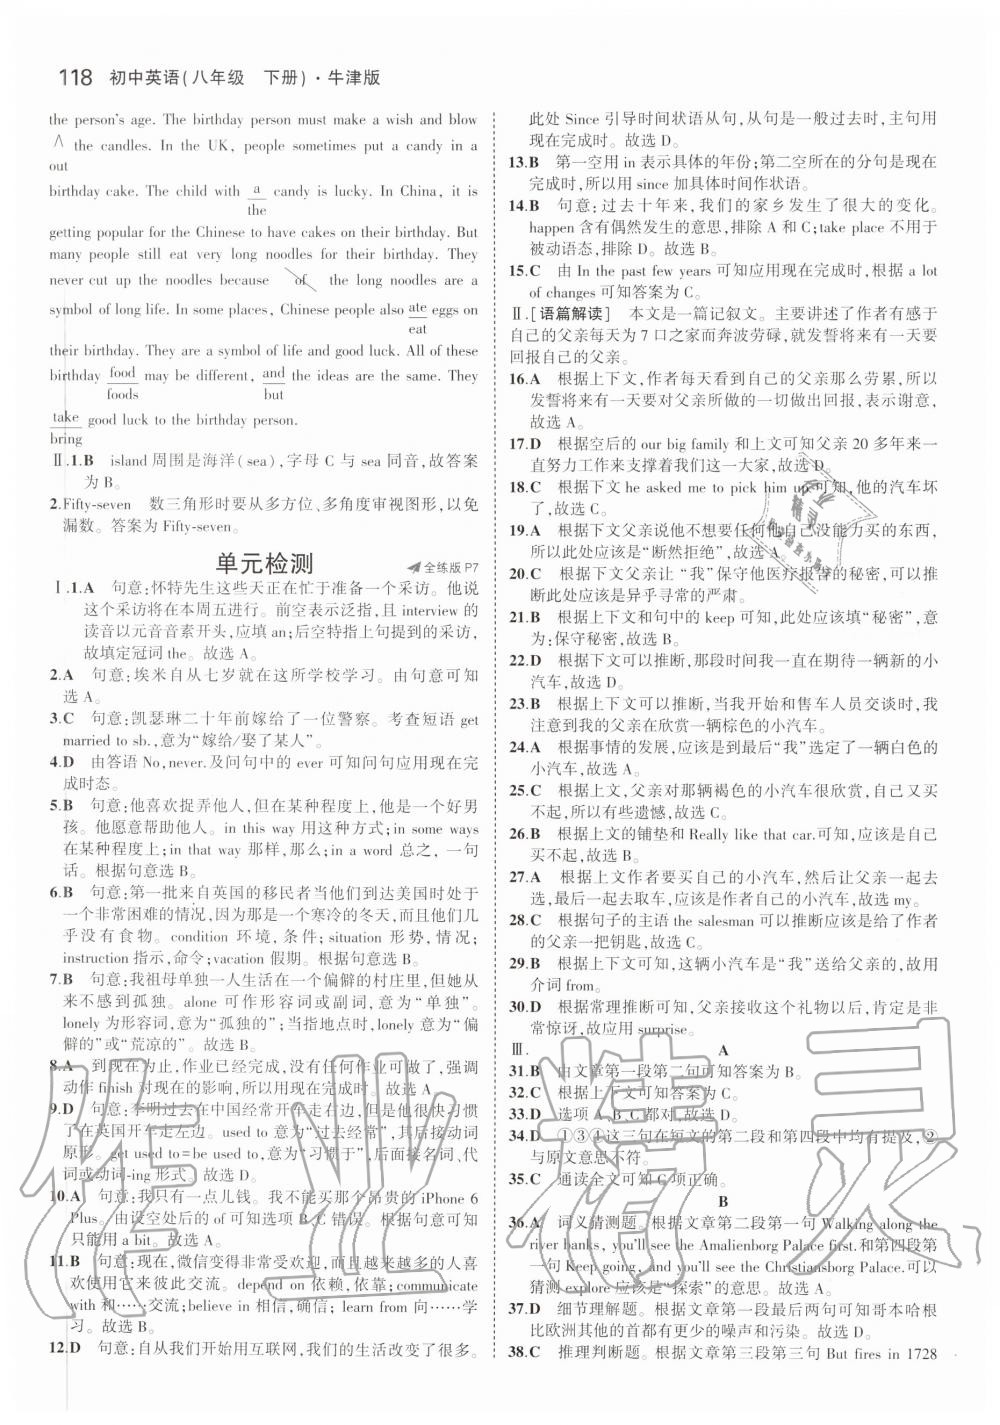 118 初中英语(八年级 下册)·牛津版
the person's age. The birthday person must make a wish and blow
∧ the candles. In the UK, people sometimes put a candy in a
out
birthday cake. The child with a candy is lucky. In China, it is
the
getting popular for the Chinese to have cakes on their birthday. But
many people still eat very long noodles for their birthday. They
never cut up the noodles because of the long noodles are
symbol of long life. In some places, Chinese people also ate eggs on
eat
their birthday. They are a symbol of life and good luck. All of these
birthday food may be different, and the ideas are the same. They
foods but
take good luck to the birthday person.
bring
Ⅱ.1.B island 周围是海洋(sea),字母 C 与 sea 同音,故答案
为 B。
2.Fifty-seven 数三角形时要从多方位、多角度审视图形,以免
漏数。答案为 Fifty-seven。
单元检测 全练版 P7
Ⅰ.1.A 句意:怀特先生这些天正在忙于准备一个采访。他说
这个采访将在本周五进行。前空表示泛指,且 interview 的
读音以元音音素开头,应填 an;后空特指上句提到的采访,
故填定冠词 the。故选 A。
2.A 句意:埃米自从七岁就在这所学校学习。由句意可知
选 A。
3.C 句意:凯瑟琳二十年前嫁给了一位警察。考查短语 get
married to sb.,意为“嫁给/娶了某人”。
4.D 由答语 No,never.及问句中的 ever 可知问句应用现在完
成时态。
5.B 句意:他喜欢捉弄他人,但在某种程度上,他是一个好男
孩。他愿意帮助他人。in this way 用这种方式;in some ways
在某种程度上;in that way 那样,那么;in a word 总之,一句
话。根据句意选 B。
6.B 句意:第一批来自英国的移民者当他们到达美国时处于
一个非常困难的情况,因为那是一个寒冷的冬天,而且他们几
乎没有食物。condition 环境,条件;situation 形势,情况;
instruction 指示,命令;vacation 假期。根据句意选 B。
7.B 句意:我祖母单独一人生活在一个偏僻的村庄里,但她从
来不感到孤独。alone 可作形容词或副词,意为“单独”。
lonely 为形容词,意为“孤独的”;当指地点时,lonely 意为“偏
僻的”或“荒凉的”。故选 B。
8.A 到现在为止,作业已经完成,没有任何作业可做了,强调
动作 finish 对现在的影响,所以用现在完成时。故选 A。
9.D 句意:李明过去在中国经常开车走右边,但是他很快习惯
了在英国开车走左边。used to 意为“过去经常”,其后接动词
原形。get used to=be used to,意为“习惯于”,其后接名词、代
词或动词-ing 形式。故选 D。
10.A 句意:我只有一点儿钱。我不能买那个昂贵的 iPhone 6
Plus。由设空处后的 of 可知选项 B、C 错误。根据句意可知
只能用 a bit。故选 A。
11.B 句意:现在,微信变得非常受欢迎,而且越来越多的人喜
欢使用它来彼此交流。depend on 依赖,依靠;communicate
with 和……交流;believe in 相信,确信;learn from 向……学
习。故选 B。
12.D 句意:自从我们开始用互联网,我们的生活改变了很多。
此处 Since 引导时间状语从句,从句是一般过去时,主句用
现在完成时。故选 D。
13.B 第一空用 in 表示具体的年份;第二空所在的分句是现在
完成时,所以用 since 加具体时间作状语。
14.B 句意:过去十年来,我们的家乡发生了很大的变化。
happen 含有偶然发生的意思,排除 A 和 C;take place 不用于
被动语态,排除 D。故选 B。
15.C 由 In the past few years 可知应用现在完成时,根据 a lot
of changes 可知答案为 C。
Ⅱ.[语篇解读] 本文是一篇记叙文。主要讲述了作者有感于
自己的父亲每天为 7 口之家而奔波劳碌,就发誓将来有一天要
回报自己的父亲。
16.A 根据上下文,作者每天看到自己的父亲那么劳累,所以
发誓将来有一天要对父亲所做的一切做出回报,表示谢意,
故选 A。
17.D 根据空后的 our big family 和上文可知父亲 20 多年来一
直努力工作来支撑着我们这一大家,故选 D。
18.C 根据下文 he asked me to pick him up 可知,他的汽车坏
了,故选 C。
19.A 根据下文父亲说他不想要任何他自己没能力买的东西,
所以此处应该是“断然拒绝”,故选 A。
20.C 根据下文父亲让“我”保守他医疗报告的秘密,可以推
断此处应该是异乎寻常的严肃。
21.B 根据上下文和句中的 keep 可知,此处应该填“秘密”,意
为:保守秘密,故选 B。
22.D 根据下文可以推断,那段时间我一直在期待一辆新的小
汽车,故选 D。
23.B 根据上下文可以推断,当我开始和售车人员交谈时,我
注意到我的父亲在欣赏一辆棕色的小汽车。
24.A 根据事情的发展,应该是到最后“我”选定了一辆白色的
小汽车,故选 A。
25.C 根据上下文推断,父亲对那辆褐色的小汽车很欣赏,自己又买
不起,所以有些遗憾,故选 C。
26.B 根据上文的铺垫和 Really like that car.可知,应该是自己
买不起,故选 B。
27.A 根据上文作者要买自己的小汽车,然后让父亲一起去
选,最后一起去取车,应该是作者自己的车,故选 my。
28.C 根据句子的主语 the salesman 可以推断应该是给了作者
的父亲一把钥匙,故选 C。
29.B 根据上下文可知,这辆小汽车是“我”送给父亲的,故用
介词 from。
30.D 根据常理推断可知,父亲接收这个礼物以后,肯定是非
常惊讶,故应用 surprise。
Ⅲ. A
31.B 由文章第一段第二句可知答案为 B。
32.C 根据上下文可知答案为 C。
33.D 选项 A、B、C 都对,故选 D。
34.D ①③④这三句在短文的第二段和第四段中均有提及,②
与原文意思不符。
35.C 通读全文可知 C 项正确。
B
36.A 词义猜测题。根据文章第二段第一句 Walking along the
river banks, you'll see the Amalienborg Palace first.和第四段第
一句 Keep going, and you'll see the Christiansborg Palace.可以
猜测 explore 应该是“探索”的意思。故选 A。
37.D 细节理解题。根据文章第一段最后两句可知哥本哈根
比欧洲其他的首都有更少的噪声和污染。故选 D。
38.C 推理判断题。根据文章第三段第三句 But fires in 1728
作业精灵